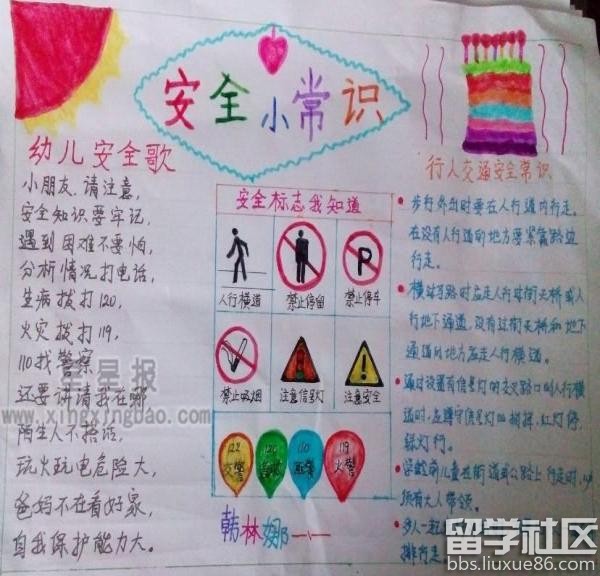 安全小常识
幼儿安全歌
小朋友,请注意,
安全知识要牢记,
遇到困难不要怕,
分析情况打电话,
生病拨打120,
火灾拨打119,
110找警察
还要讲请我在哪
陌生人不搭话,
玩火玩电危险大,
爸妈不在看好家,
自我保护能力大。
安全标志我知道
人行横道
禁止停留
禁止停车
禁止吸烟
注意信号灯
注意安全
122
交警
120
急救
110
匪警
119
火警
韩林娜
行人交通安全常识
步行外出时要在人行道内行走。
在没有人行道的地方要紧靠路边
行走。
横过马路时应走人行过街天桥或人
行地下通道,没有过街天桥和地下
通道的地方应走人行横道。
通过设置有信号灯的交叉路口时人行横
道时,应遵守信号灯的指挥,红灯停,
绿灯行。
学龄前儿童在街道或公路上行走时,
须有大人带领。
多人一起
排行走。
星星报
www.xingxingbao.com
留学社区
bbs.liuxue86.com